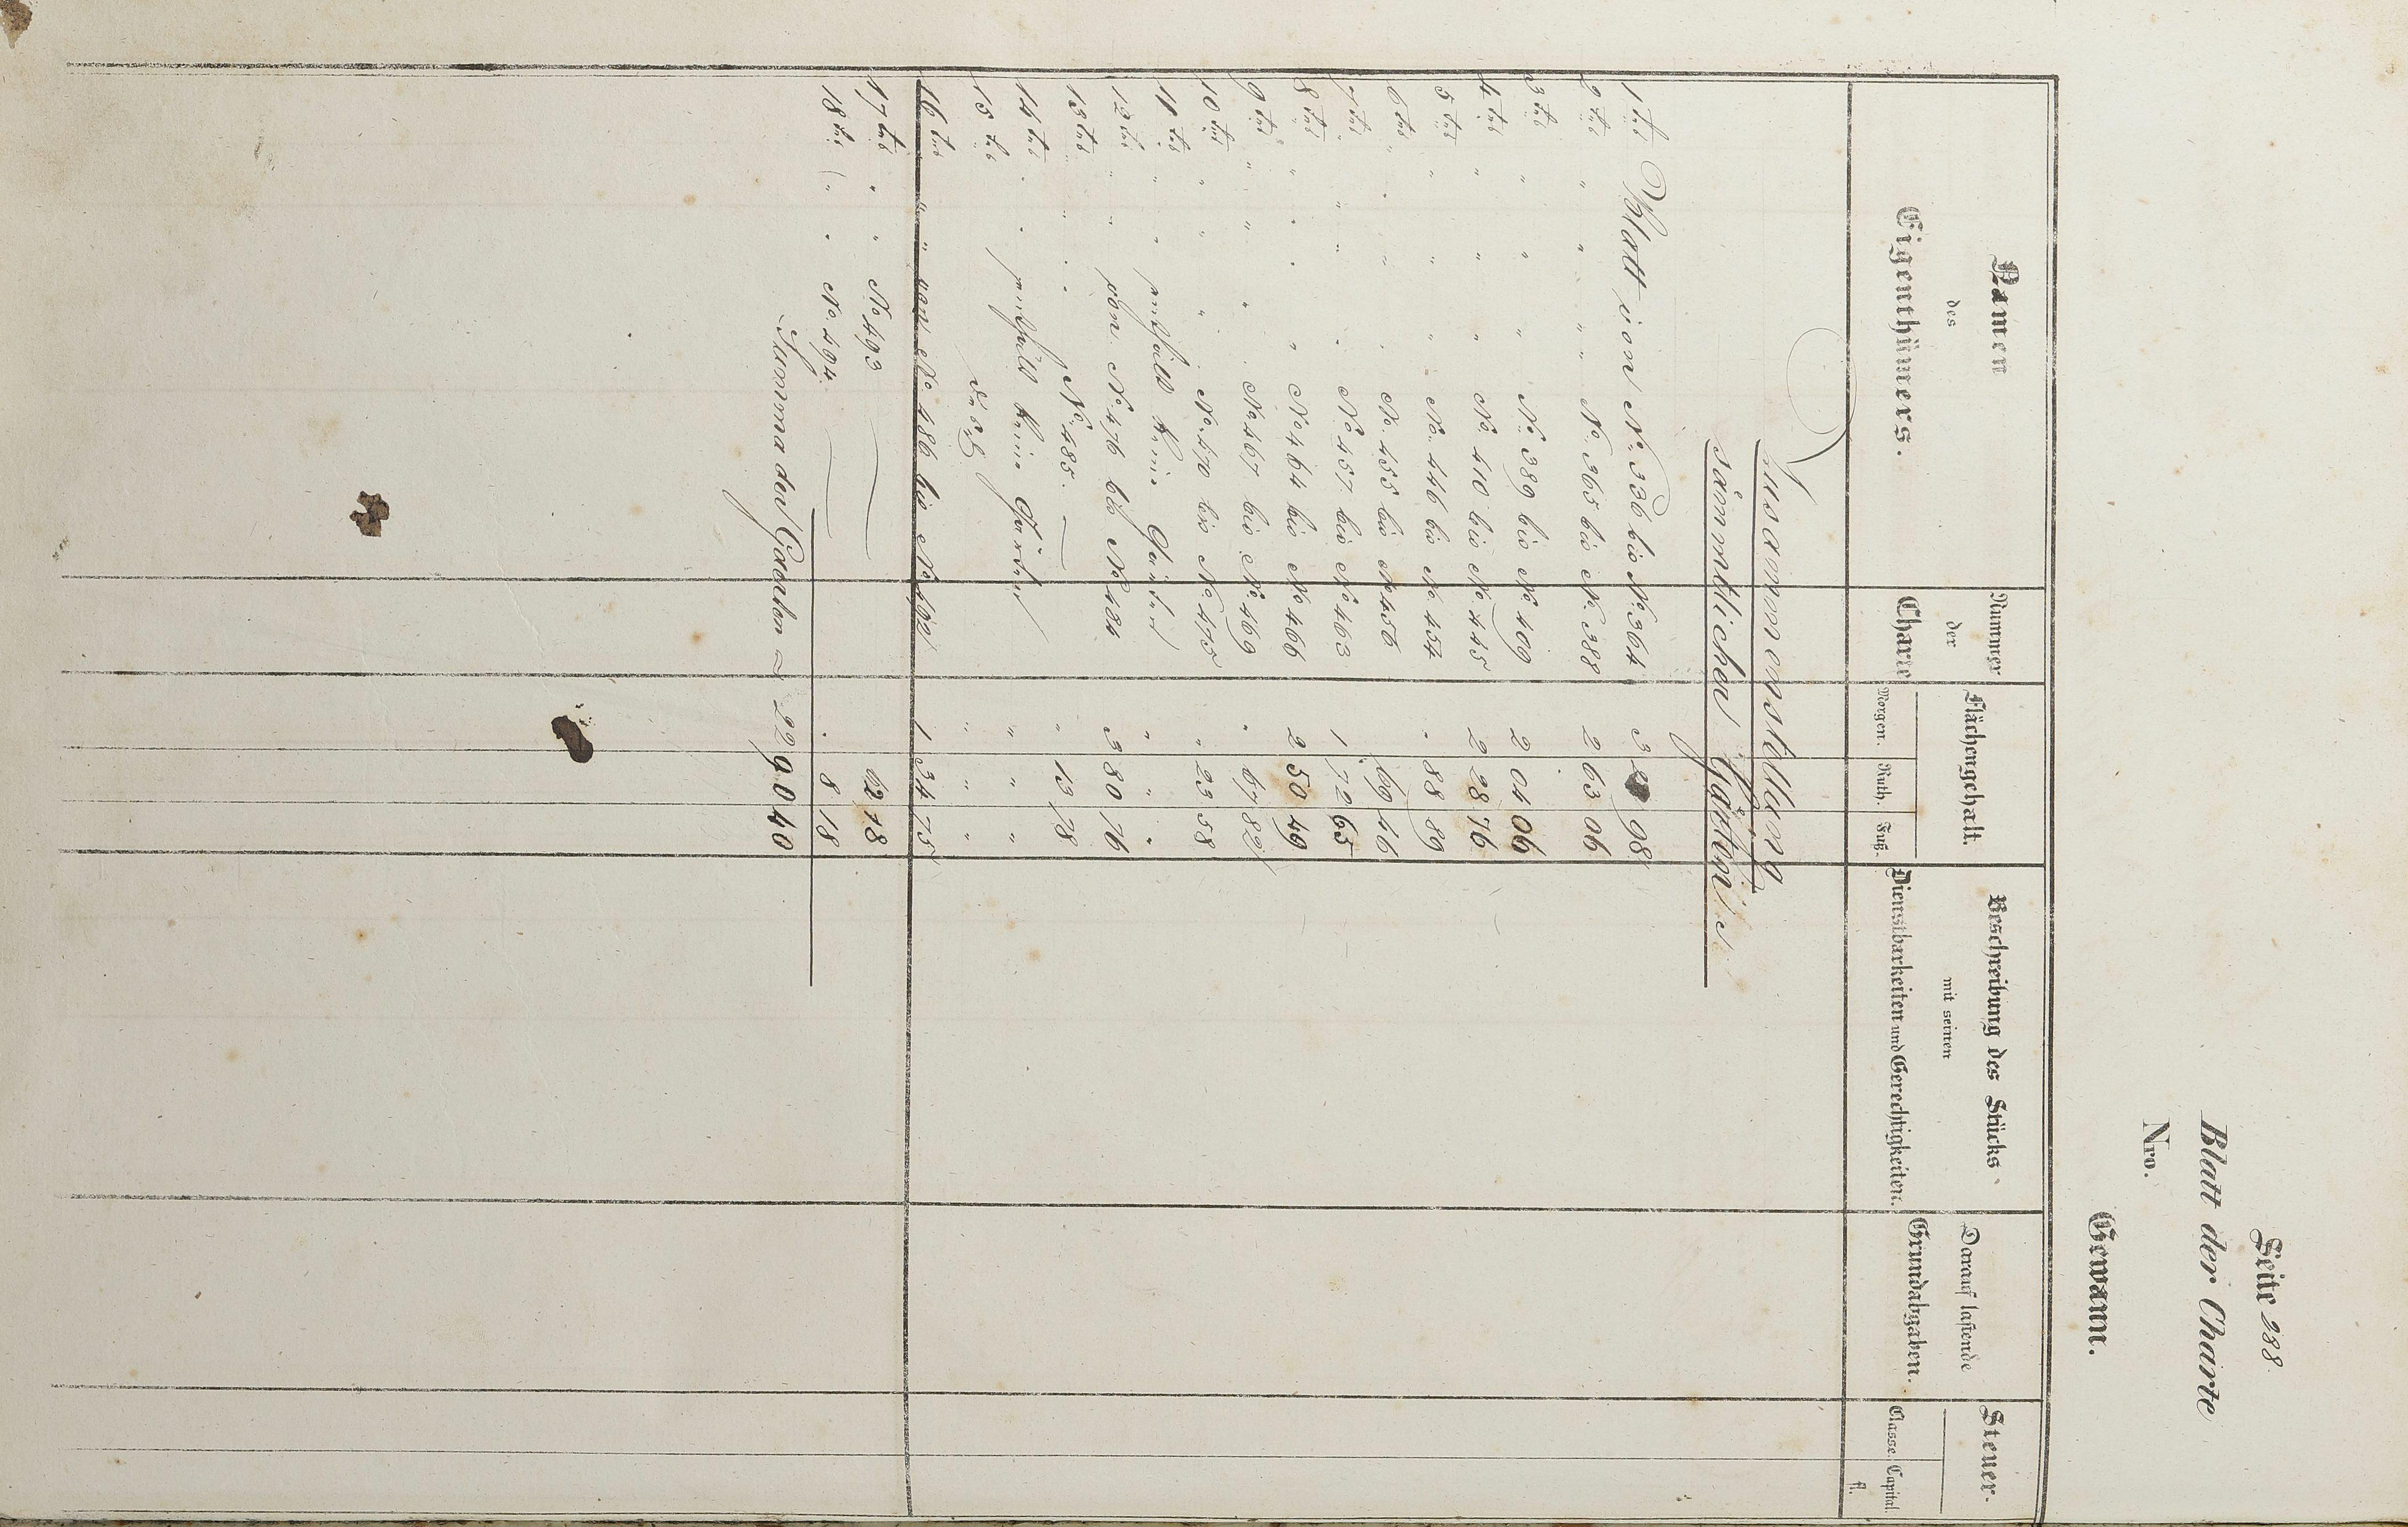 Seite 288
Blatt der Charte
Nro.
Gewann.
Namen des Eigenthümers.
Nummer der Charte
Flächengehalt.
Morgen. Ruth. Fuß.
Beschreibung des Stücks mit seinen Dienstbarkeiten und Gerechtigkeiten.
Darauf lastende Grundabgaben.
Steuer.
Classe. Capital. fl.
Zusammenstellung
sämmtlicher Gärten
1tes Blatt von No. 336 bis No. 364 3 98
2tes " " " " No. 365 bis No. 388 2 63 06
3tes " " " No. 389 bis No. 409 2 04 06
4tes " " " No. 410 bis No. 445 2 28 76
5tes " " " No. 446 bis No. 454 " 88 89
6tes " " " " No. 455 bis No 456 69 46
7tes " " " No. 457 bis No. 463 1 72 65
8tes " " " " No 464 bis No 466 2 50 49
9tes " " " " No. 467 bis No. 469 " 67 82
10tes " " " No. 470 bis No. 475 " 23 58
11tes " " enthält keine Gärten " " "
12tes " " von No. 476 bis No 484 3 80 76
13tes " " " No. 485. " 13 78
14tes " " enthält keine Gärten " " "
15tes " " "
16tes " " von No. 486 bis No. 492 1 34 75
17tes " " No. 493 62 18
18tes " " No. 494. " 8 18
Summa der Gärten 22 90 40